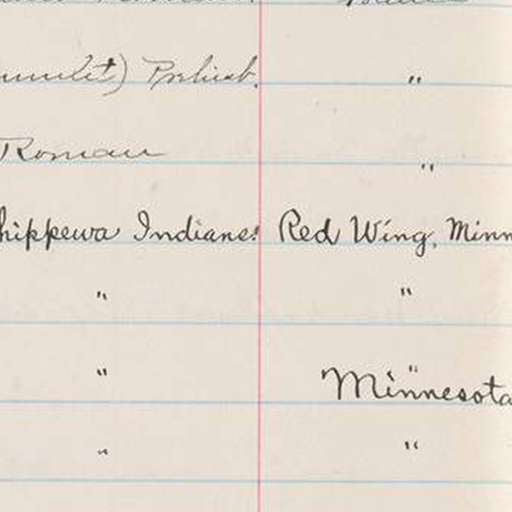 Prehist. "
Roman "
hippewa Indians. Red Wing, Minn
" "
" Minnesota
" "